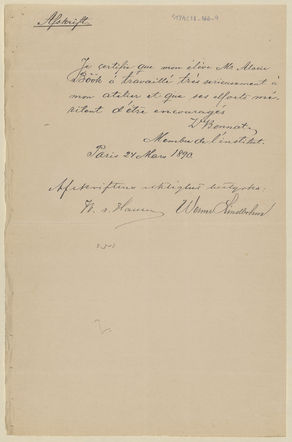 Afskrift.
Je certifie que mon élève Mr. Alarie
Böök á travaillé trés serieusement á
mon atelier et que ses efforts mé-
ritent d'être encouragés
Ln Bonnat,
Membre de l'institut.
Paris 24 Mars 1890.
Afskriftens riktighet bestyrka: